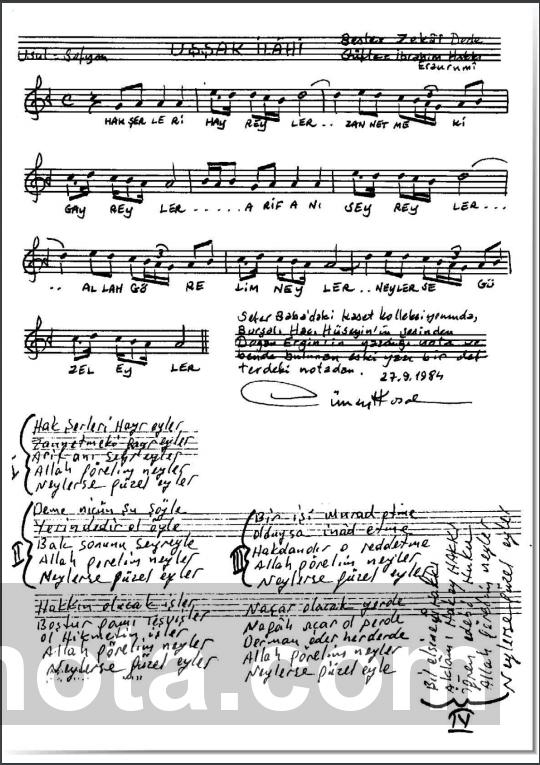 UŞŞAK İLÂHİ
Usul = Sofyan
Beste = Zekâî Dede
Güfte = İbrahim Hakkı
Erzurumi
HAK ŞER LE Rİ HAY REY LER... ZAN NET ME Kİ
GAY REY LER..... A RİF A NI SEY REY LER...
.. AL LAH GÖ RE LİM NEY LER.. NEYLER SE GÜ
ZEL EY LER
Seher Baba'daki kaset kolleksiyonunda,
Bursalı Hacı Hüseyin'in sesinden
Doğan Ergin'in yazdığı nota ve
bende bulunan eski yazı bir def
terdeki notadan. 27.9.1984
I
Hak Şerleri Hayr eyler
Zannetmeki gayr eyler
Arif anı seyr eyler
Allah görelim neyler
Neylerse güzel eyler
II
Deme niçün şu şöyle
Yerindedir ol öyle
Bak sonunu seyreyle
Allah görelim neyler
Neylerse güzel eyler
III
Bir işi murad etme
olduysa inad etme
Hakdandır o reddetme
Allah görelim neyler
Neylerse güzel eyler
Hakkın olacak işler
Boştur
ol Hikmetin işler
Allah görelim neyler
Neylerse güzel eyler
Naçar olacak yerde
açar ol perde
Derman eder herderde
Allah görelim neyler
Neylerse güzel eyler
IV
Allah görelim neyler
Neylerse güzel eyler
nota.com